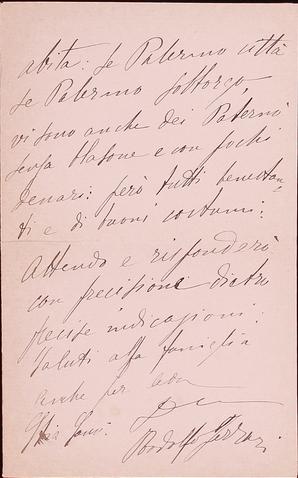 abita: se Palermo città
se Palermo sottorco,
vi sono anche dei Paternò
senza blasone e con pochi
denari: però tutti benestan=
ti e di buoni costumi.
Attendo e risponderò
con precisione dietro
precise indicazioni.
Saluti alla famiglia
anche per
Rodolfo Ferrari